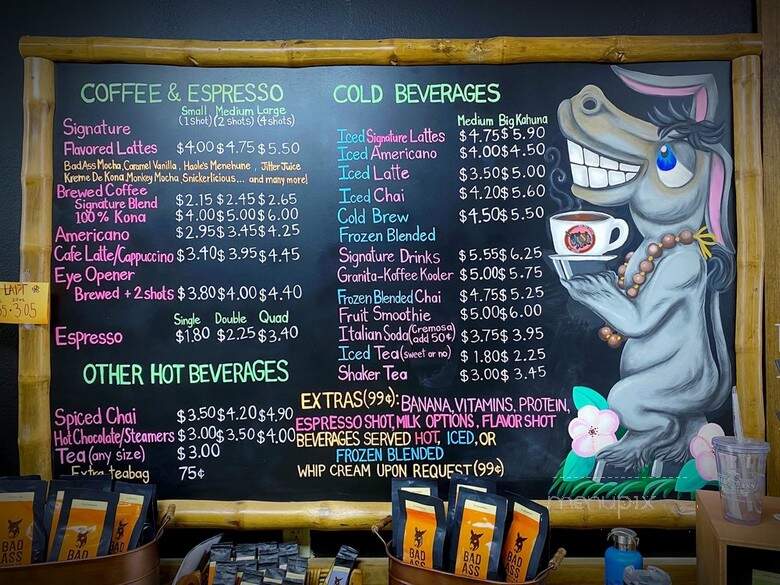 COFFEE & ESPRESSO
Small Medium Large
(1shot) (2 shots) (4shots)
Signature
Flavored Lattes $4.00 $4.75 $5.50
BadAss Mocha, Caramel Vanilla, Haole's Menehune, Jitter Juice
Kreme De Kona, Monkey Mocha, Snickerlicious... and many more!
Brewed Coffee
Signature Blend $2.15 $2.45 $2.65
100% Kona $4.00 $5.00 $6.00
Americano $2.95 $3.45 $4.25
Cafe Latte/Cappuccino $3.40 $3.95 $4.45
Eye Opener
Brewed + 2 shots $3.80 $4.00 $4.40
Single Double Quad
Espresso $1.80 $2.25 $3.40
OTHER HOT BEVERAGES
Spiced Chai $3.50 $4.20 $4.90
Hot Chocolate/Steamers $3.00 $3.50 $4.00
Tea (any size) $3.00
Extra teabag 75¢
COLD BEVERAGES
Medium Big Kahuna
Iced Signature Lattes $4.75 $5.90
Iced Americano $4.00 $4.50
Iced Latte $3.50 $5.00
Iced Chai $4.20 $5.60
Cold Brew $4.50 $5.50
Frozen Blended
Signature Drinks $5.55 $6.25
Granita-Koffee Kooler $5.00 $5.75
Frozen Blended Chai $4.75 $5.25
Fruit Smoothie $5.00 $6.00
Italian Soda (Cremosa add 50¢) $3.75 $3.95
Iced Tea (sweet or no) $1.80 2.25
Shaker Tea $3.00 $3.45
EXTRAS (99¢): BANANA, VITAMINS, PROTEIN,
ESPRESSO SHOT, MILK OPTIONS, FLAVOR SHOT
BEVERAGES SERVED HOT, ICED, OR
FROZEN BLENDED
WHIP CREAM UPON REQUEST (99¢)
menupix
BAD
ASS
BAD
ASS
BAD
ASS
BAD
ASS
BAD
ASS
BAD
ASS